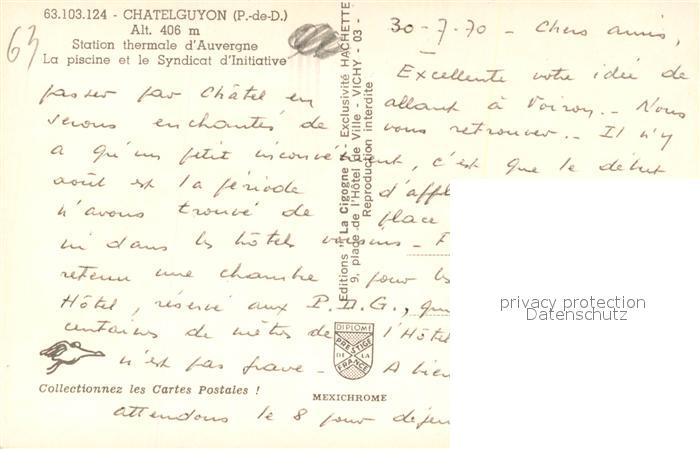 63.103.124 - CHATELGUYON (P.-de-D.)
Alt. 406 m
Station thermale d'Auvergne
La piscine et le Syndicat d'Initiative
63
30-7-70 - Chers amis,
Excellente votre idée de
passer par Châtel en allant à Voiron.- Nous
serons enchantés de vous retrouver.- Il n'y
a qu'un petit inconvénient, c'est que le début
août est la période d'affl
n'avons trouvé de place
ni dans les hôtels voisins -
retenu une chambre pour les
Hôtel, réservé aux P.D.G., qu
centaines de mètres de l'Hôtel
n'est pas grave - A bien
attendons le 8 pour déjeu
Editions "La Cigogne" Exclusivité HACHETTE
9, place de l'Hôtel de Ville - VICHY - 03 -
Reproduction interdite
DIPLOME
PRESTIGE
DE LA
FRANCE
Collectionnez les Cartes Postales !
MEXICHROME
privacy protection
Datenschutz